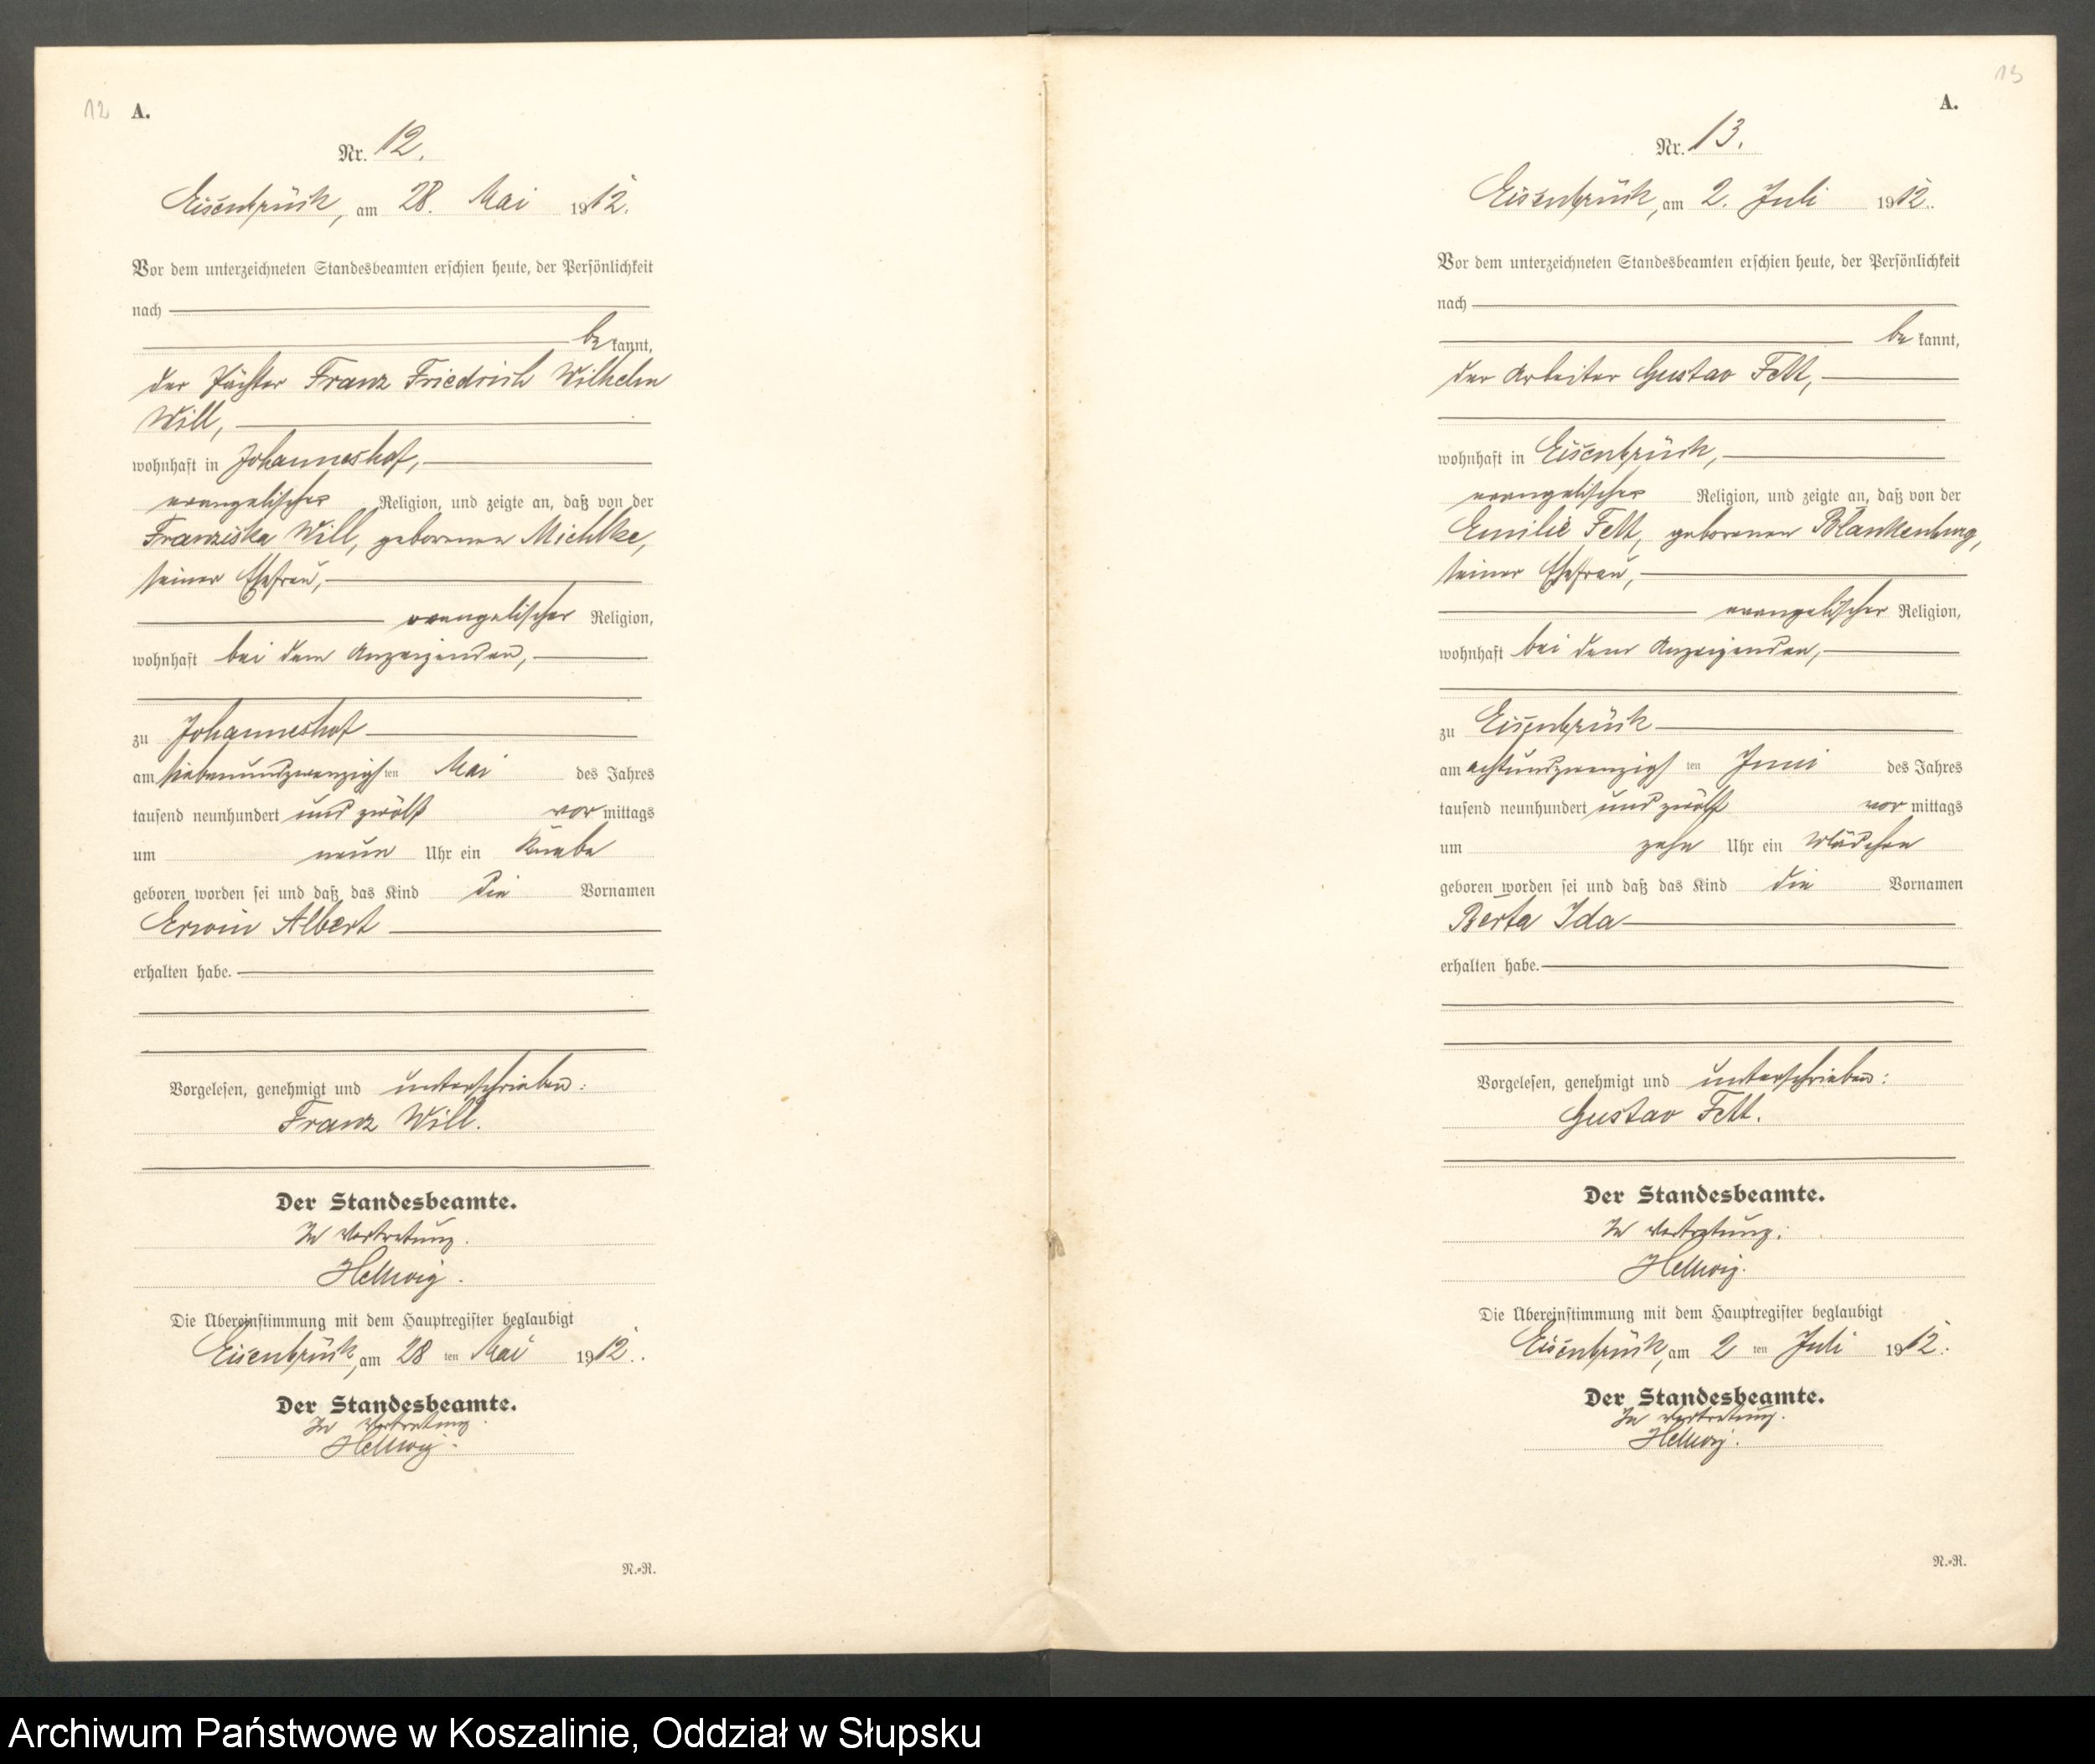 12 A.
Nr. 12.
Eisenbrück, am 28. Mai 1912.
Vor dem unterzeichneten Standesbeamten erschien heute, der Persönlichkeit
nach
bekannt,
der Pächter Franz Friedrich Wilhelm
Will,
wohnhaft in Johanneshof,
evangelischer Religion, und zeigte an, daß von der
Franziska Will, geborenen Michlke,
seiner Ehefrau,
evangelischer Religion,
wohnhaft bei dem Anzeigenden,
zu Johanneshof
am siebenundzwanzigsten Mai des Jahres
tausend neunhundert und zwölf vormittags
um neun Uhr ein Knabe
geboren worden sei und daß das Kind die Vornamen
Erwin Albert
erhalten habe.
Vorgelesen, genehmigt und unterschrieben:
Franz Will.
Der Standesbeamte.
In Vertretung.
Hellwig.
Die Übereinstimmung mit dem Hauptregister beglaubigt
Eisenbrück, am 28ten Mai 1912.
Der Standesbeamte.
In Vertretung.
Hellwig.
N.=R.
13
A.
Nr. 13.
Eisenbrück, am 2. Juli 1912.
Vor dem unterzeichneten Standesbeamten erschien heute, der Persönlichkeit
nach
bekannt,
der Arbeiter Gustav Fett,
wohnhaft in Eisenbrück,
evangelischer Religion, und zeigte an, daß von der
Emilie Fett, geborenen Blankenburg,
seiner Ehefrau,
evangelischer Religion,
wohnhaft bei dem Anzeigenden,
zu Eisenbrück
am achtundzwanzigsten Juni des Jahres
tausend neunhundert und zwölf vormittags
um zehn Uhr ein Mädchen
geboren worden sei und daß das Kind die Vornamen
Berta Ida
erhalten habe.
Vorgelesen, genehmigt und unterschrieben:
Gustav Fett.
Der Standesbeamte.
In Vertretung.
Hellwig.
Die Übereinstimmung mit dem Hauptregister beglaubigt
Eisenbrück, am 2ten Juli 1912.
Der Standesbeamte.
In Vertretung.
Hellwig.
N.=R.
Archiwum Państwowe w Koszalinie, Oddział w Słupsku